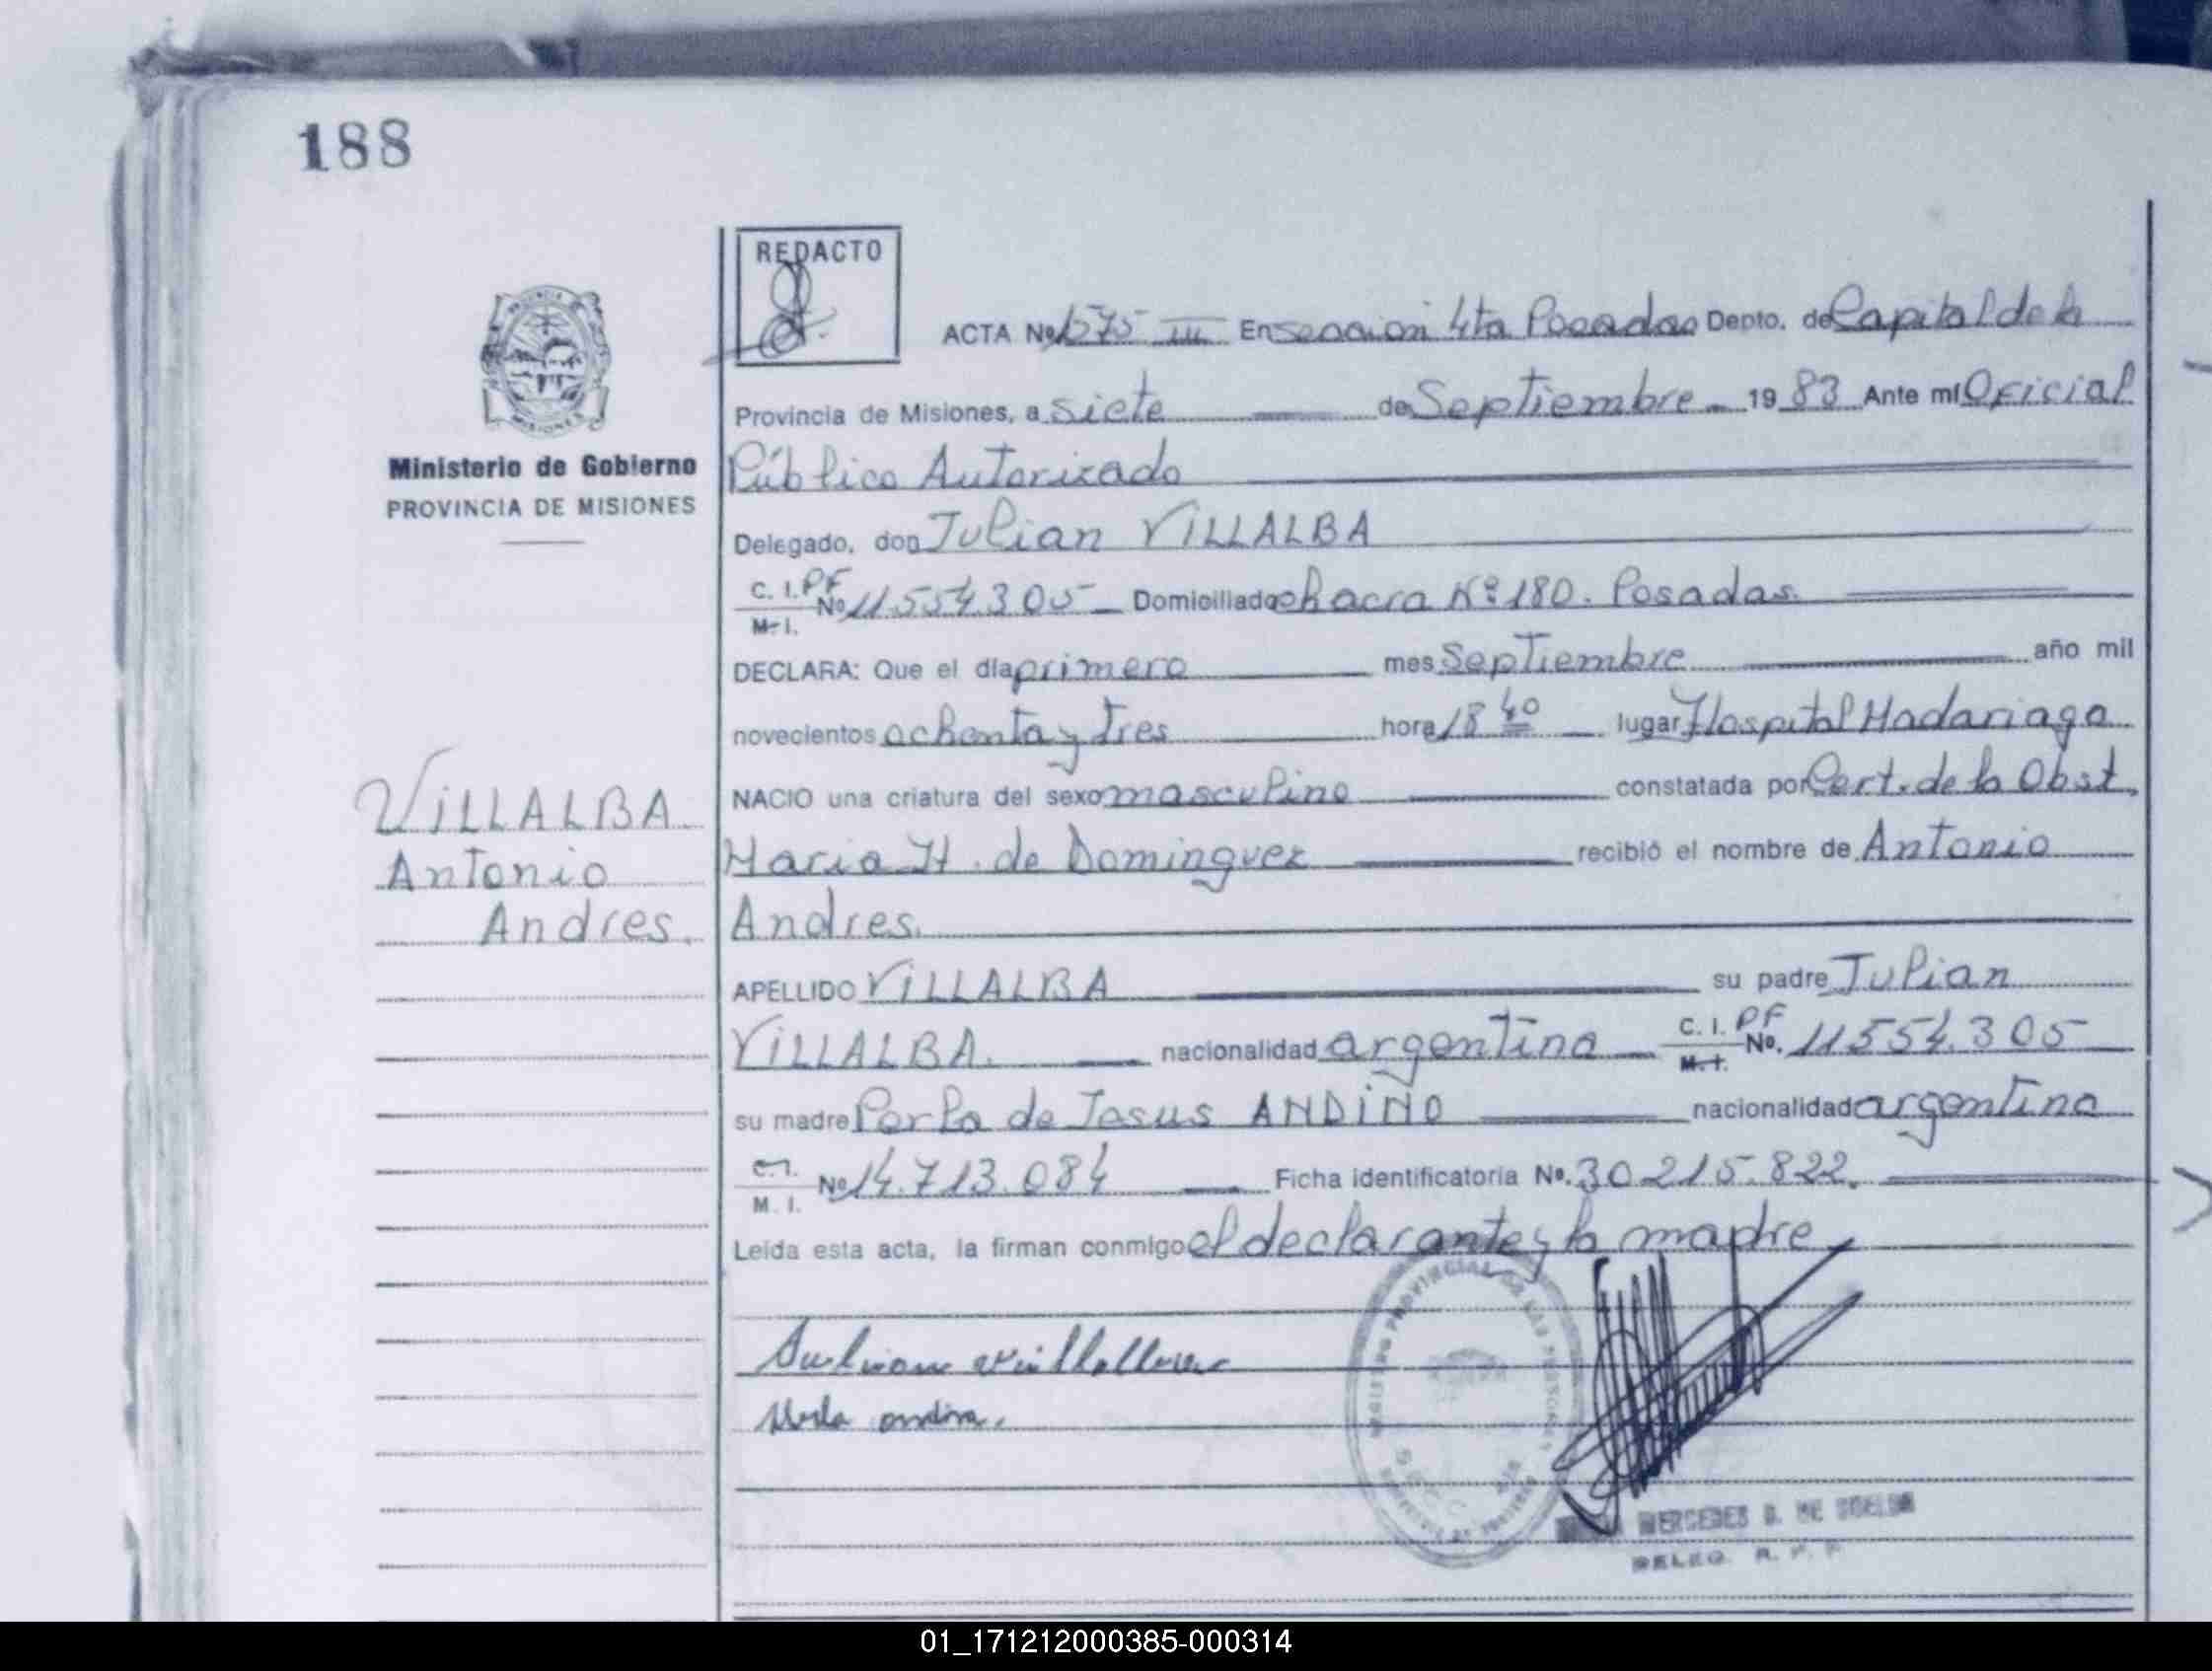 188
REDACTO
ACTA Nº 1575 III En sección 4ta Posadas Depto. de Capital de la
Provincia de Misiones, a siete de Septiembre 1983 Ante mí Oficial
Ministerio de Gobierno
PROVINCIA DE MISIONES
Público Autorizado
Delegado, don Julian VILLALBA
C. I. PF M. I. Nº 11.554.305 Domiciliado chacra Nº 180. Posadas.
DECLARA: Que el día primero mes Septiembre año mil
novecientos ochenta y tres hora 18 40 lugar Hospital Madariaga
NACIO una criatura del sexo masculino constatada por Cert. de la Obst.
VILLALBA
Antonio
Andres.
Maria H. de Dominguez recibió el nombre de Antonio
Andres.
APELLIDO VILLALBA su padre Julian
VILLALBA. nacionalidad argentina C. I. PF M. I. No. 11554.305
su madre Perla de Jesus ANDINO nacionalidad argentina
C. I. M. I. Nº 14.713.084 Ficha identificatoria Nº. 30.215.822.
Leída esta acta, la firman conmigo el declarante y la madre
Julian Villalba
Perla andino.
MERCEDES
DELEG. R. P. P.
01_171212000385-000314